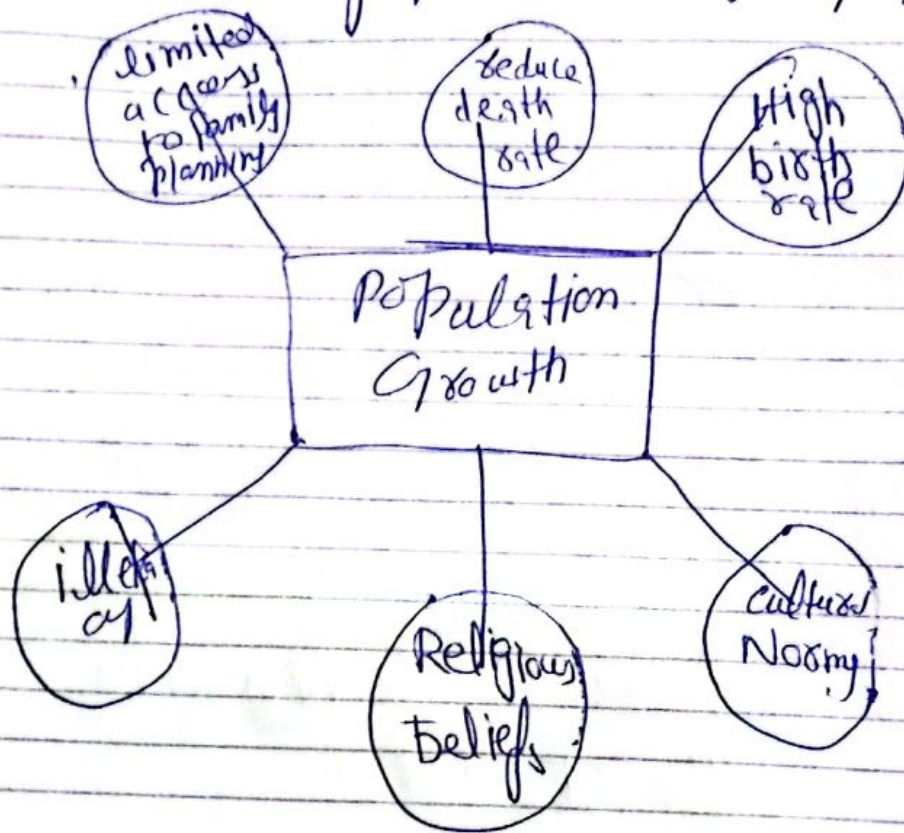 limited
access
to family
planning
reduce
death
rate
High
birth
rate
Population
Growth
illetr
acy
Religious
beliefs
Cultural
Norms